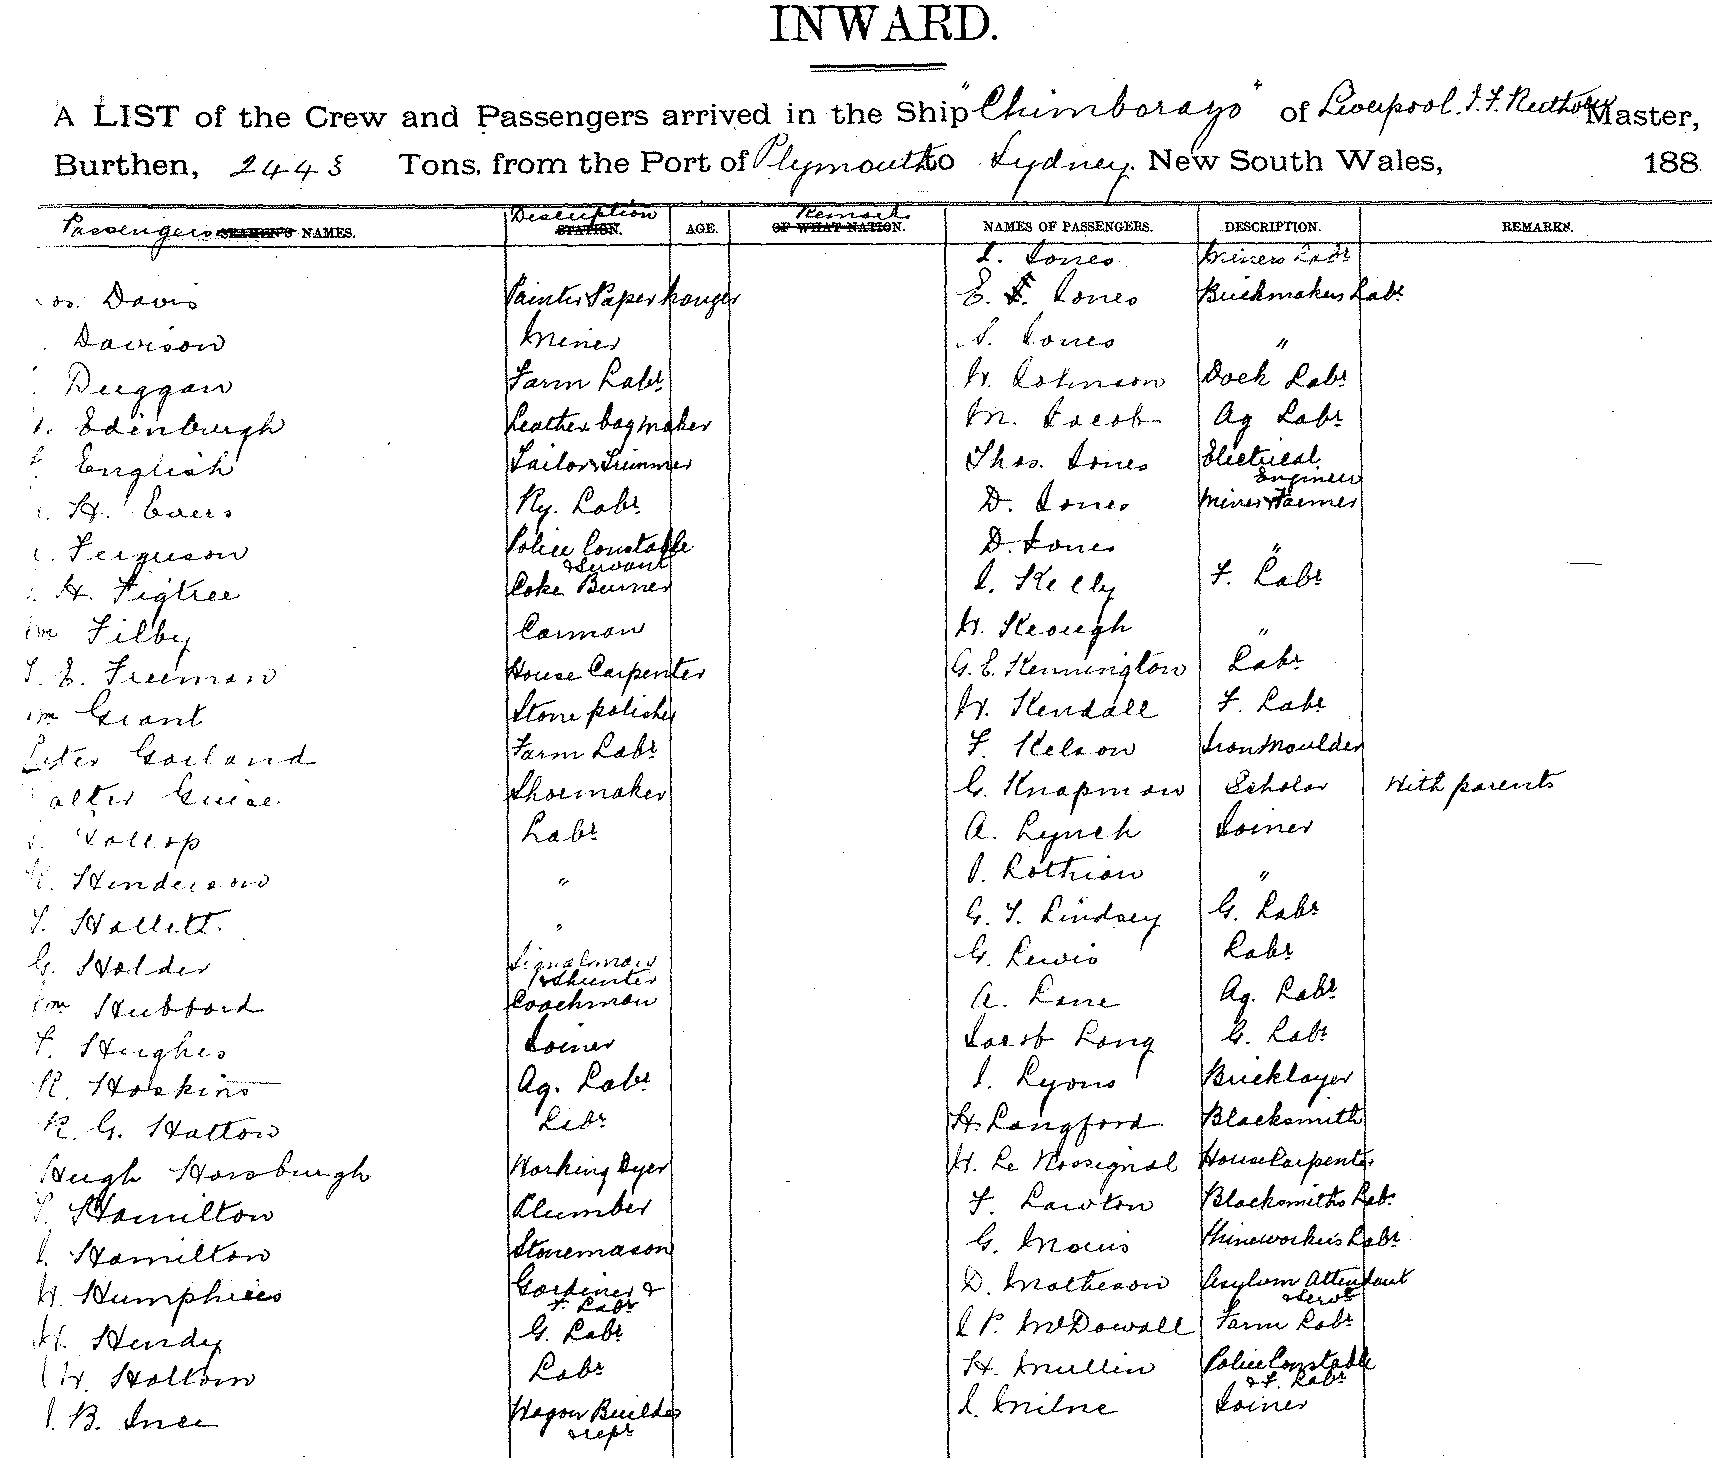 INWARD.
A LIST of the Crew and Passengers arrived in the Ship "Chimborazo" of Liverpool. Master,
Burthen, 2443 Tons, from the Port of Plymouth to Sydney. New South Wales, 188
Passengers SEAMEN'S NAMES. Description STATION. AGE. Remark OF WHAT NATION. NAMES OF PASSENGERS. DESCRIPTION. REMARKS.
J. Jones Miners Labr
Davis Painter Paperhanger E. Jones Brickmakers Labr
Davison Miner S. Jones "
Duggan Farm Labr W. Johnson Dock Labr
Edinburgh Leather bag maker M. Jacob Ag Labr
English Tailor & Trimmer Thos. Jones Electrical Engineer
H. Evers Ry. Labr D. Jones Miner & Farmer
Ferguson Police Constable & Servant D. Jones "
H. Figtree Coke Burner J. Kelly F. Labr
Filby Carman W. Keough "
E. Freeman House Carpenter G. E. Kennington Labr
Grant Stone polisher W. Kendall F. Labr
Garland Farm Labr F. Kelson Iron Moulder
Guise Shoemaker G. Knapman Scholar With parents
Labr A. Lynch Joiner
Henderson " J. Lothian "
T. Hallett. " G. T. Lindsey G. Labr
G. Holder Signalman & Shunter G. Lewis Labr
Hubbard Coachman A. Lane Ag. Labr
F. Hughes Joiner Jacob Long G. Labr
R. Hoskins Ag. Labr J. Lyons Bricklayer
R. G. Hatton Labr H. Langford Blacksmith
Hugh Horsburgh Working Dyer W. Le Rossignal House Carpenter
Hamilton Plumber F. Lawton Blacksmiths Labr
J. Hamilton Stonemason G. Morris Mineworkers Labr
W. Humphries Gardiner & F. Labr D. Matheson Asylum Attendant & Servt
H. Hendy G. Labr J. P. McDowall Farm Labr
W. Holtom Labr H. Mullin Police Constable & F. Labr
J. B. Ince Wagon Builder & repr J. Milne Joiner